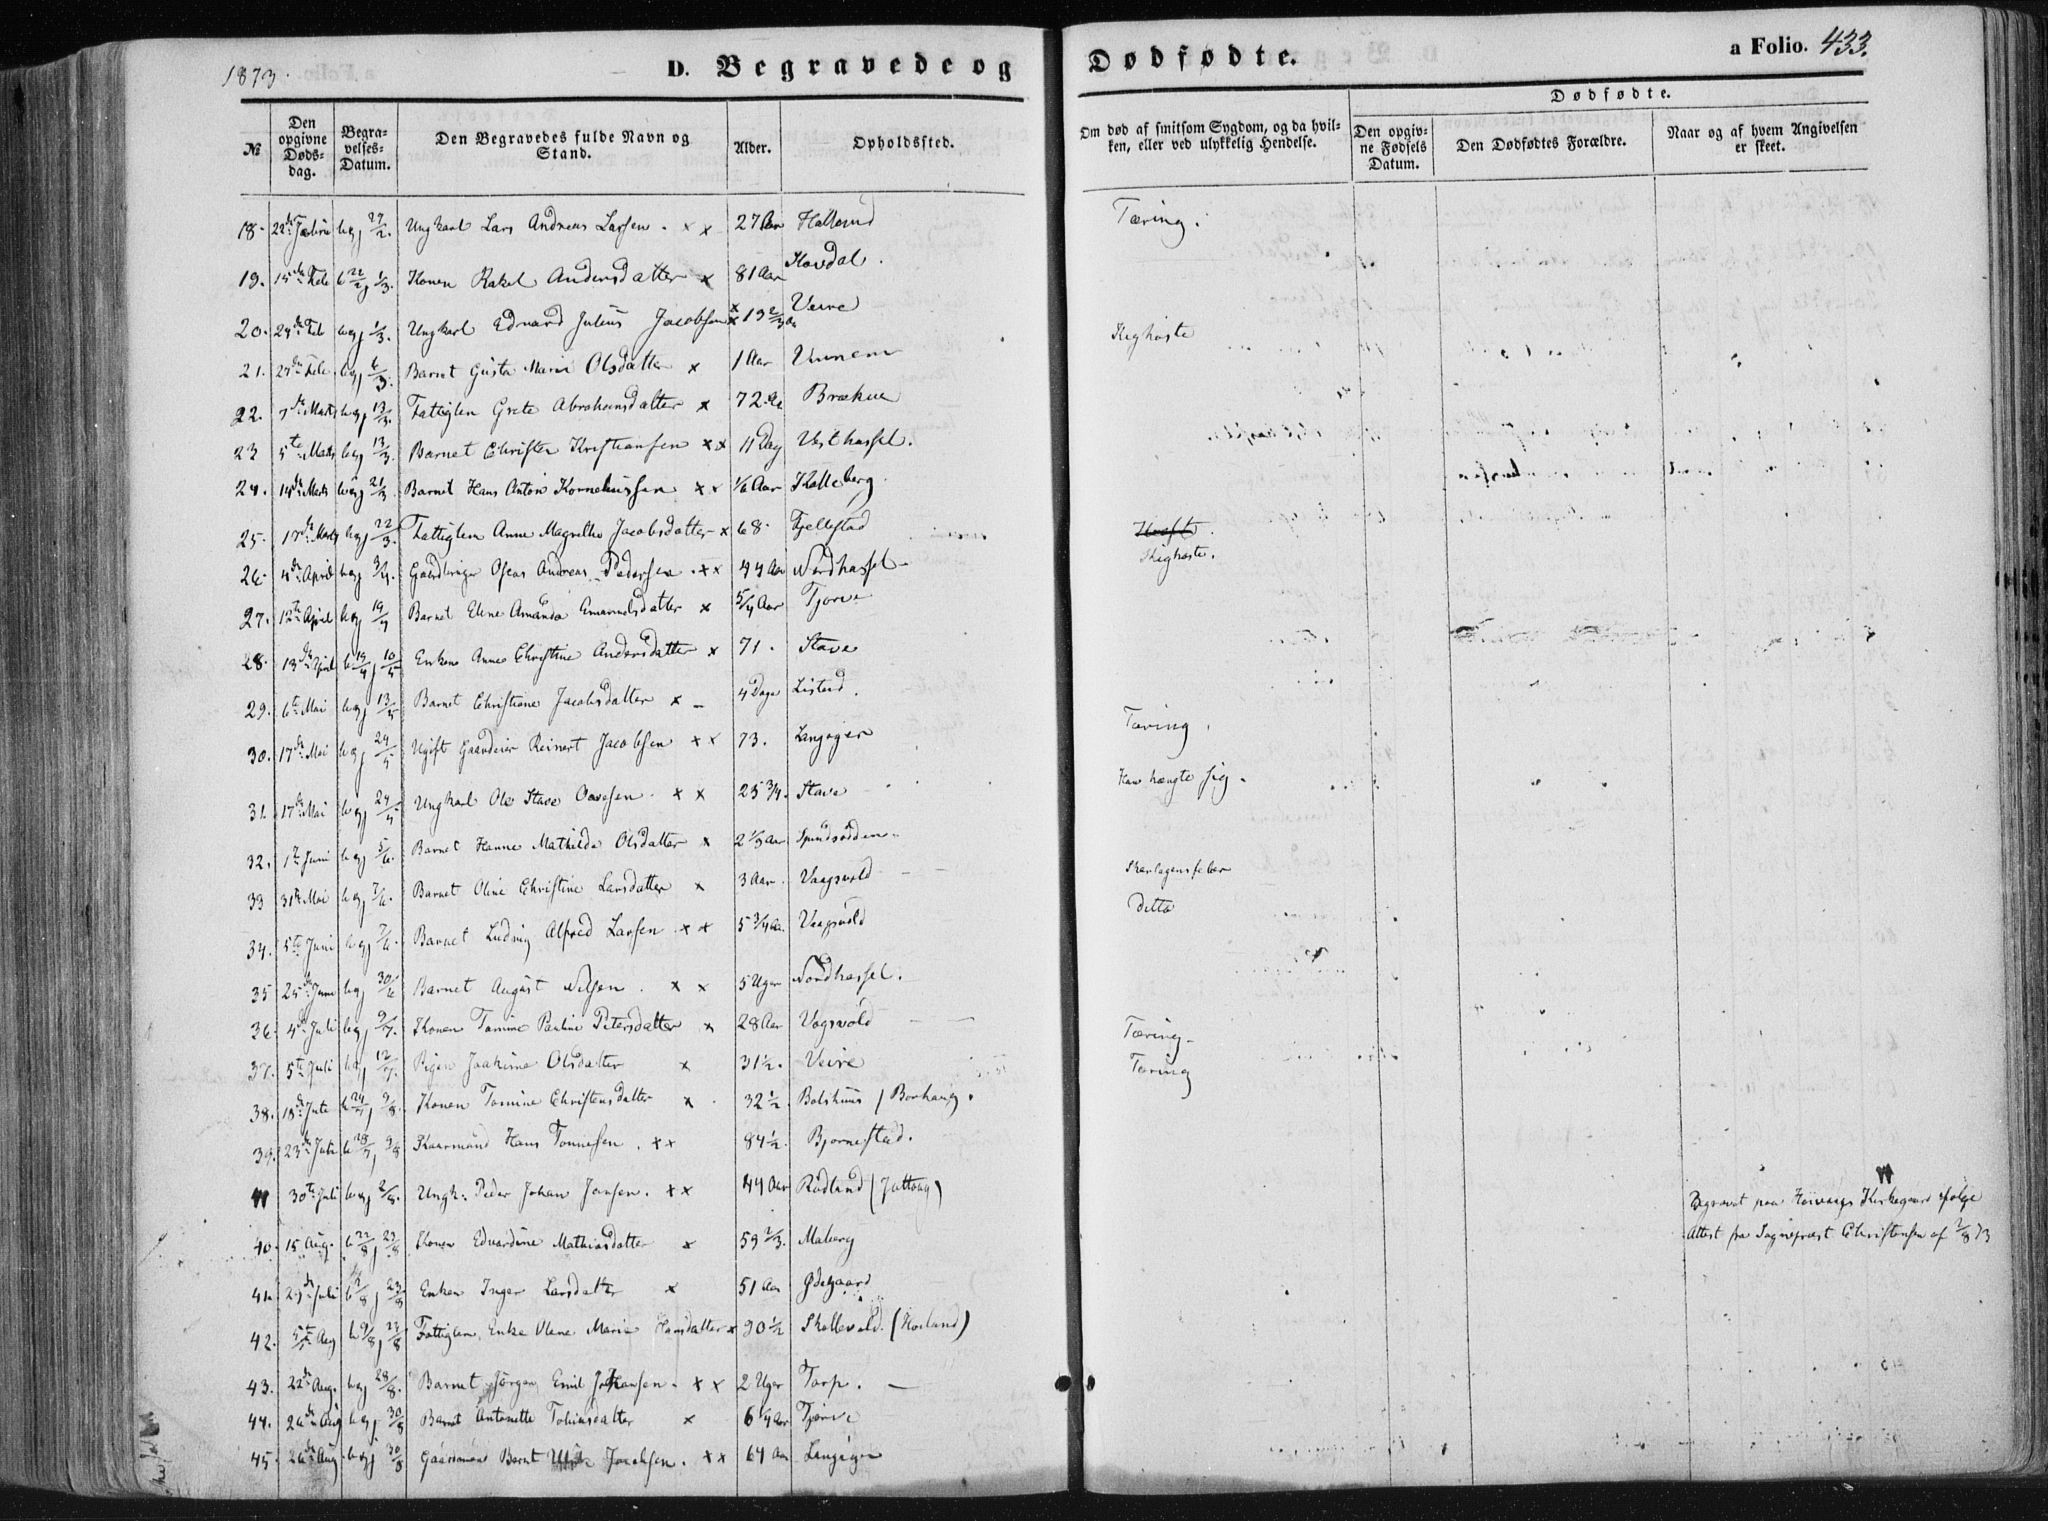 1873.
D. Begravede og
Dødfødte.
a Folio. 433.
№
Den opgivne Døds-dag.
Begra-velses-Datum.
Den Begravedes fulde Navn og Stand.
Alder.
Opholdssted.
Om død af smitsom Sygdom, og da hvil-ken, eller ved ulykkelig Hendelse.
Dødfødte.
Den opgiv-ne Fødsels Datum.
Den Dødfødtes Forældre.
Naar og af hvem Angivelsen er skeet.
18. 22de Febru b og j 27/2. Ungkarl Lars Andreas Larsen . x x 27 Aar Tæring.
19. 15de Feb b 22/2 j 1/3. Konen Rakel Andersdatter x 81 Aar Havdal.
20. 24de Feb b og j 1/3. Ungkarl Edvard Julius Jacobsen x x 19 2/3 Aar Veire
21. 27de Feb b og j 6/3. Barnet Gusta Marie Olsdatter x 1 Aar Unnem Kighoste
22. 7de Marts b og j 13/3. Fattiglem Grete Abrahamsdatter x 72 Aar Brækne
23 5te Marts b og j 13/3. Barnet Christen Kristiansen x x 11 Dag Vesthassel.
24. 14de Marts b og j 21/3 Barnet Hans Anton Korneliussen x x 1/6 Aar Kalleberg
25. 17de Marts b og j 22/3. Fattiglem Anne Magrethe Jacobsdatter x 68. Fjellestad
26. 4de April b og j 9/4. Gaardbruger Oscar Andreas Pedersen . x x 44 Aar Nordhassel
27. 12te April b og j 19/4 Barnet Eline Amanda Emanuelsdatter x 5/4 Aar Tjørve Kighoste.
28. 13de April b 19/4 j 10/5 Enken Anne Christine Andersdatter x 71. Stave
29. 6te Mai b og j 13/5 Barnet Christiane Jacobsdatter x 4 Dage Listeid.
30. 17de Mai b og j 24/5 Ugift Gaardeier Reinert Jacobsen x x 73. Langager Tæring.
31. 17de Mai b og j 24/5 Ungkarl Ole Stave Ovesen . x x 25 3/4. Stave Han hængte sig.
32. 1te Juni b og j 5/6. Barnet Hanne Mathilde Olsdatter x 2 1/3 Aar
33 31te Mai b og j 7/6. Barnet Oline Christine Larsdatter x 3 Aar. Vaagsvold Skarlagensfeber
34. 5te Juni b og j 7/6. Barnet Ludvig Alfred Larsen . x x 5 3/4 Aa. Vaagsvold Ditto
35 25de Juni b og j 30/6 Barnet August Nilsen . x x 5 Uger Nordhassel.
36. 4de Juli b og j 9/7. Konen Tomine Pauline Petersdatter x 28 Aar Vagsvold
37. 5te Juli b og j 12/7. Pigen Joakime Olsdatter x 31 1/2. Veire Tæring
38. 18de Juli b 24/7 j 9/8. Konen Tomine Christensdatter x 32 1/2. Bolshuus / Borhaug. Tæring
39. 23de Juli b 28/7 j 9/8 Kaarmand Hans Tonnesen . x x 84 1/2. Bjørnestad.
30te Juli b og j 2/8. Ungk: Peder Johan Jansen. x x 44 Aar Rødland (Jøttaug) Begravet paa Høivaags Kirkegaard ifølge
Attest fra Sognepræst Christensen af 2/8 73
40. 15 Aug. b 22/8 j 23/8 Konen Edvardine Mathiasdatter x 59 2/3. Maberg
41. 29de Juli b j 23/8 Enken Inger Larsdatter x 51 Aar Ødegaard
42. 5te Aug b 9/8 j 23/8 Fattiglem, Enke Olene Marie Hansdatter x 90 1/2 Skollevold. (Horland)
43. 22de Aug. b og j 28/8. Barnet Jørgen Emil Johansen . x x 2 Uger Torp.
44. 26de Aug b og j 30/8 Barnet Antonette Tobiasdatter x 6 1/4 Aar Tjørve
45. 26de Aug. b og j 30/8 Gaardmand Bernt Jacobsen . x x 64 Aar Langager